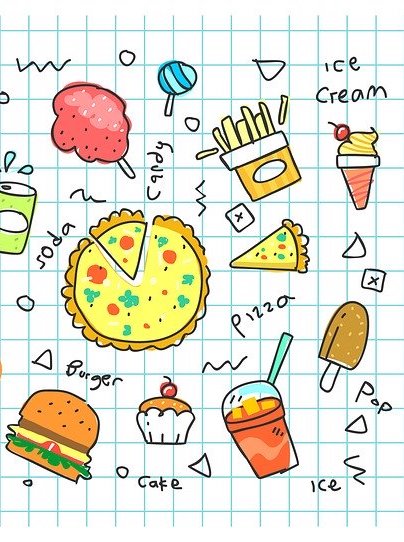 ice
Cream
Candy
soda
Pizza
Burger
Pop
Cake
Ice